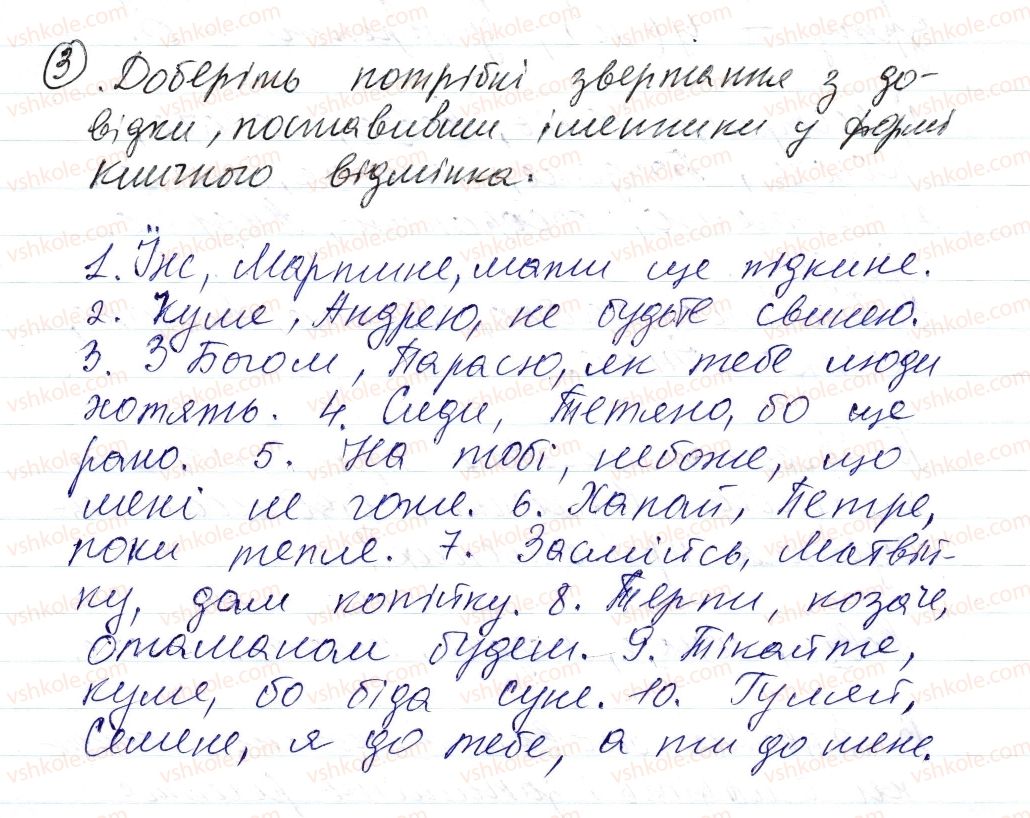 3. Доберіть потрібні звертання з до-
відки, поставивши іменники у формі
кличного відмінка.
1. Їж, Мартине, мати ще підкине.
2. Куме, Андрею, не будьте свинею.
3. З Богом, Парасю, як тебе люди
хотять. 4. Сиди, Тетяно, бо ще
рано. 5. На тобі, небоже, що
мені не гоже. 6. Хапай, Петре,
поки тепле. 7. Засмійсь, Матвій-
ку, дам копійку. 8. Терпи, козаче,
отаманом будеш. 9. Тікайте,
куме, бо біда суне. 10. Гуляй,
Семене, я до тебе, а ти до мене.